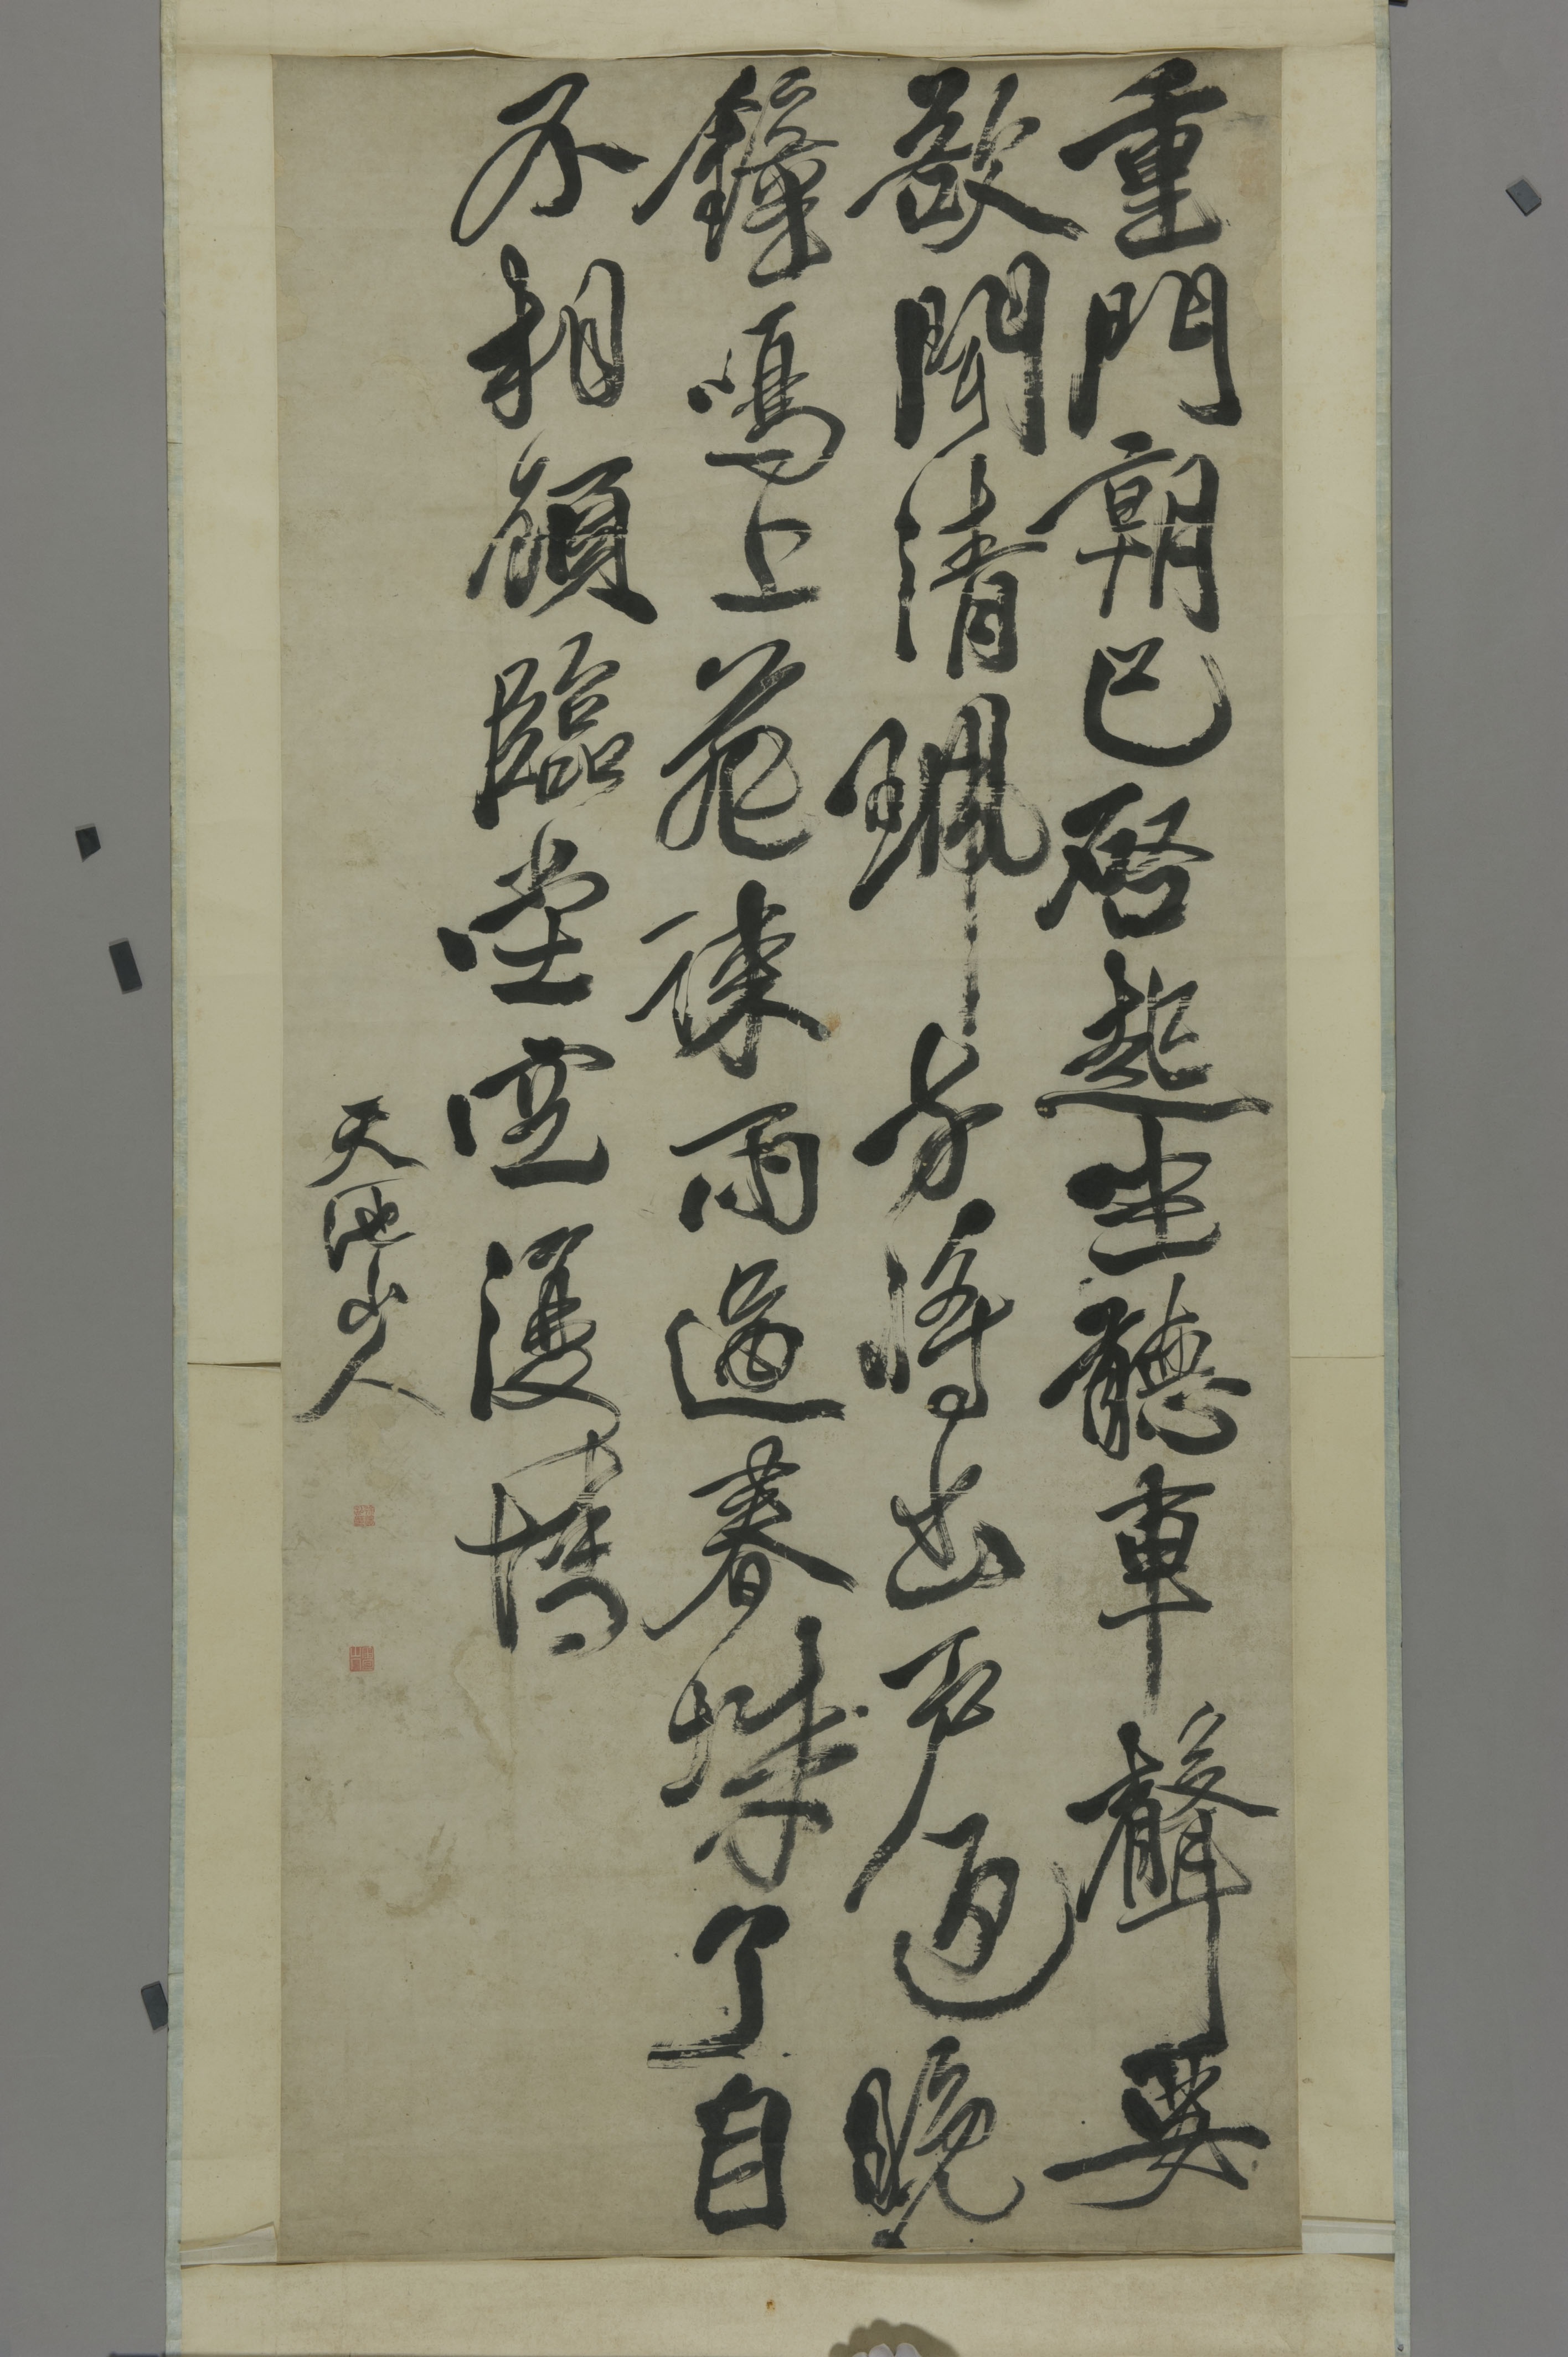 重門朝已啓起坐聽車聲要
欲聞清珮方將出户迎晚
鐘鳴上苑疎雨過春城了自
不相顧臨堂空復情
天池山人